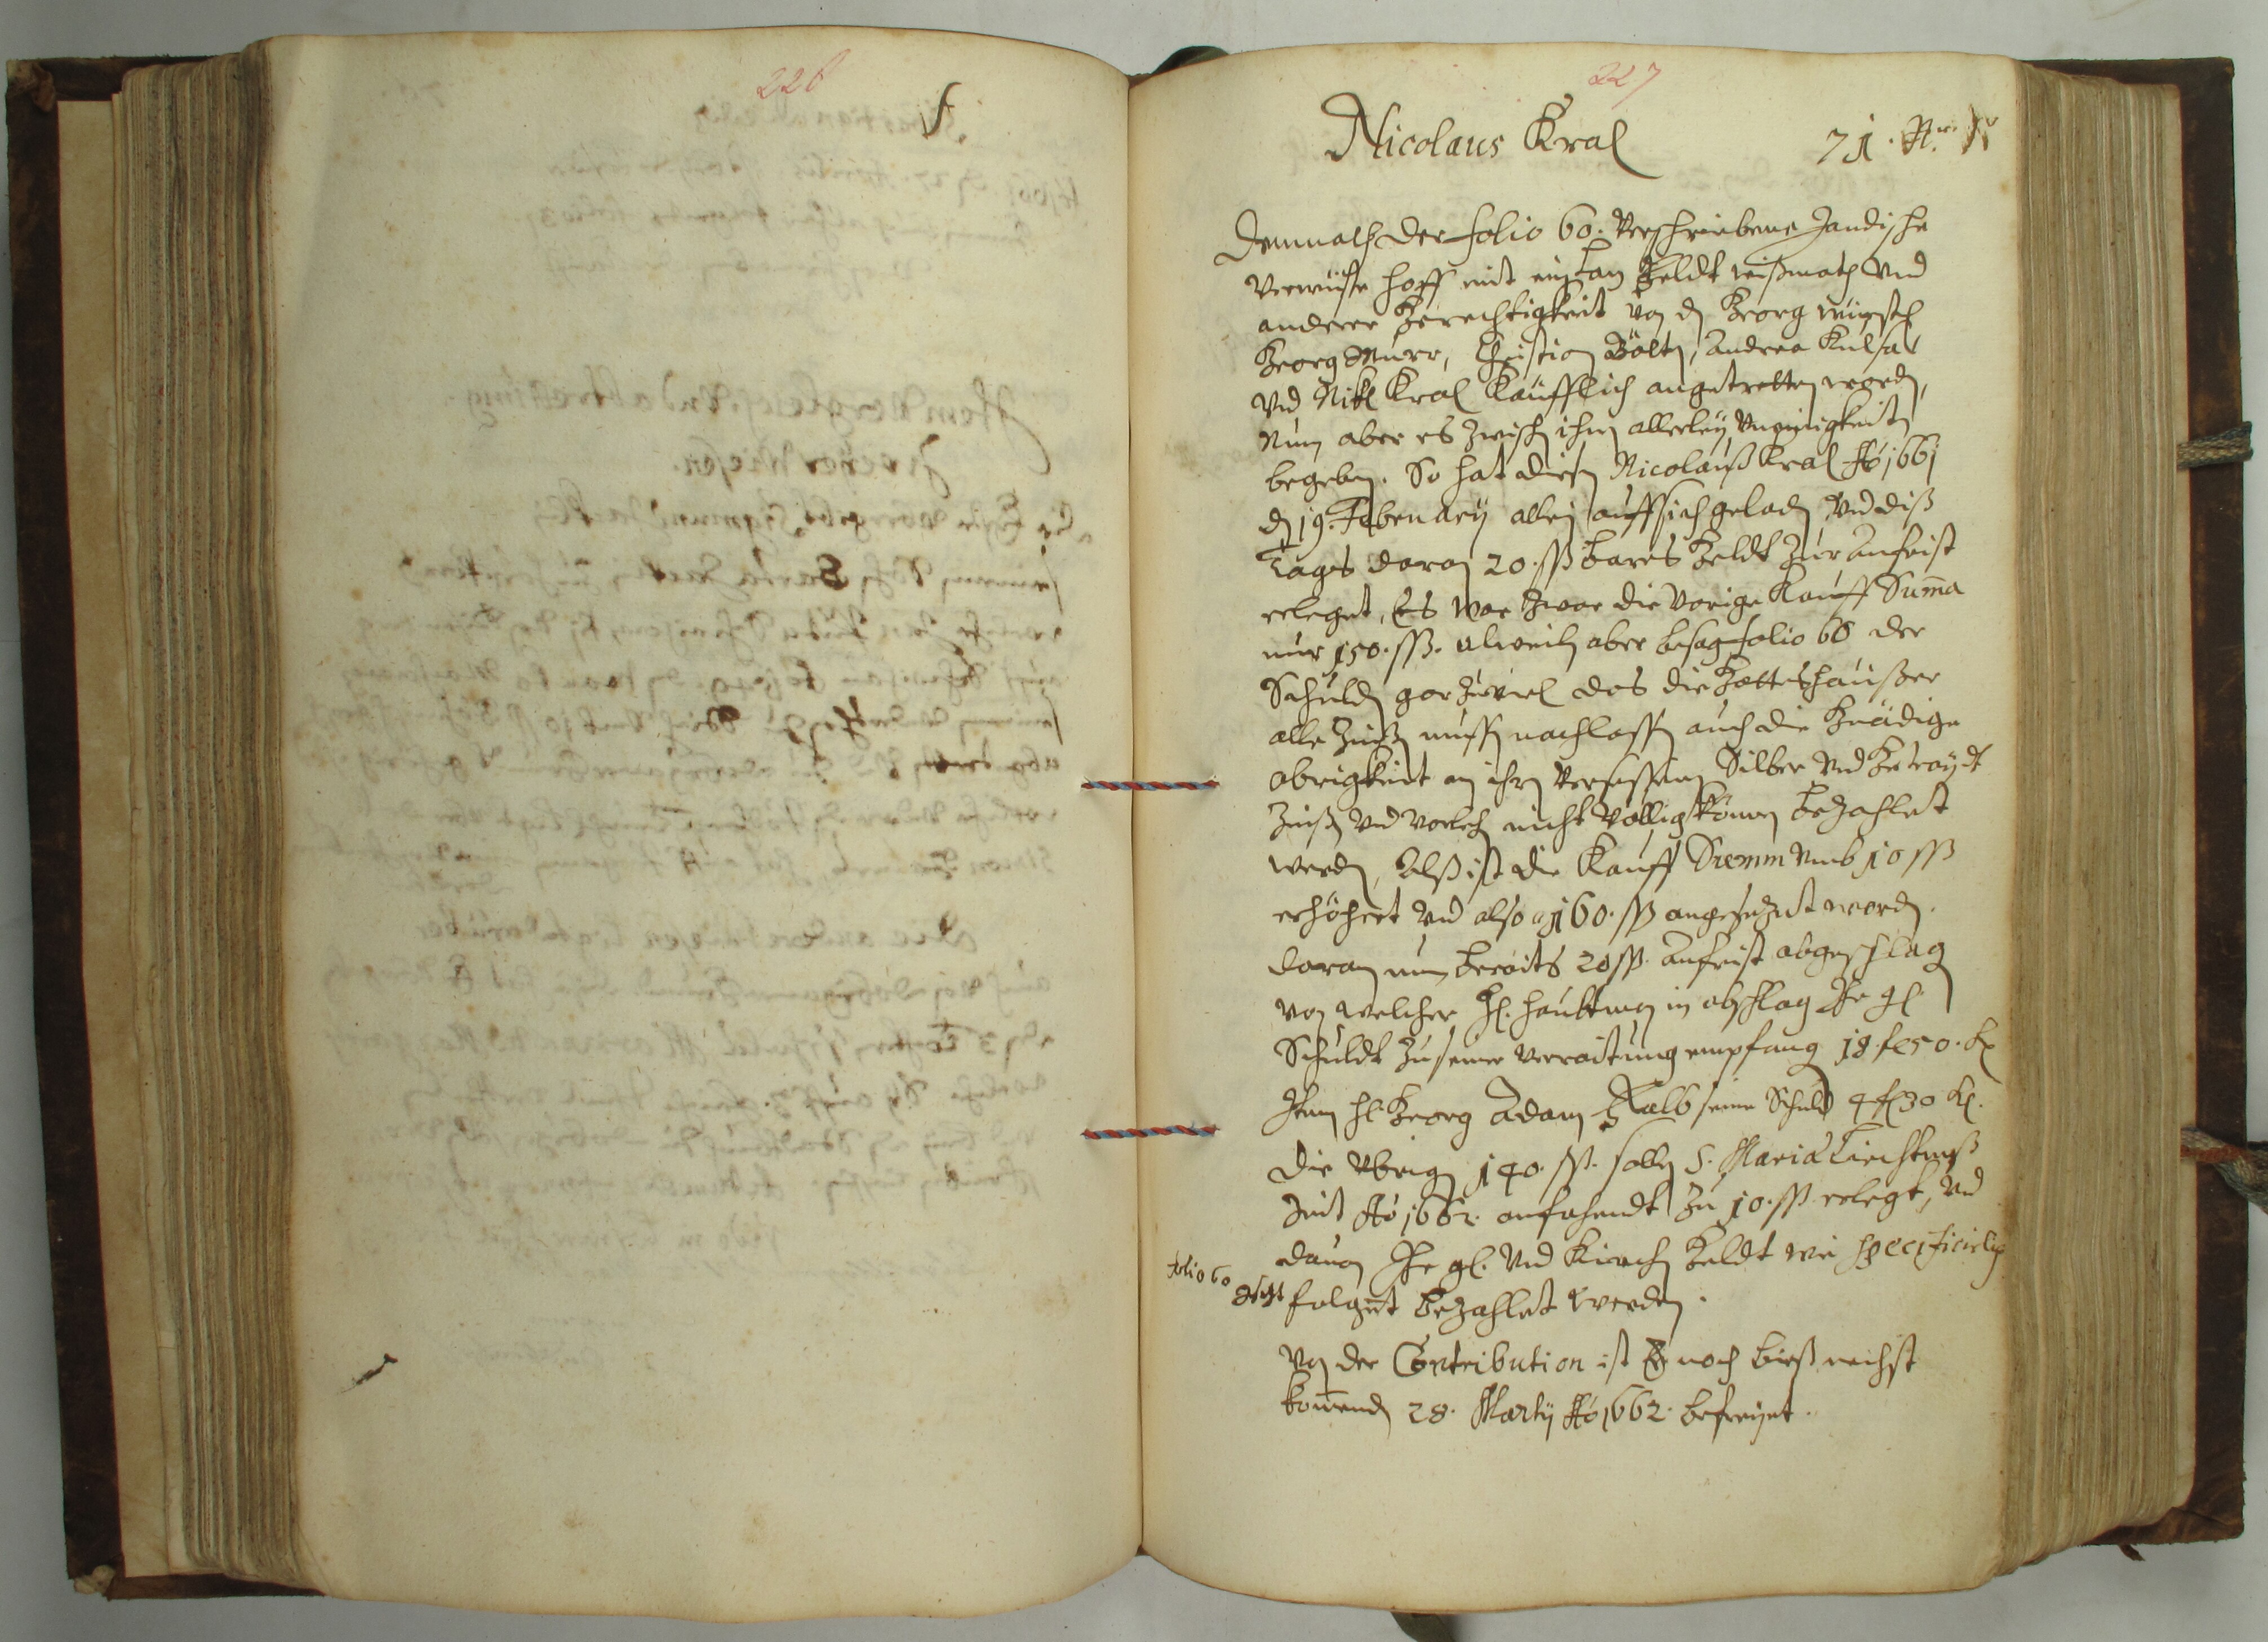 226
f
227
Nicolaus Kral 71. Nr.
Demnach der folio 60. Verschriebene Jandische
Verwüste Hoff mit eigtan Feldt wißmath Vnd
anderer Gerechtigkeit von dn Georg
Georg Murr, Christian Böltn, Andrea Kulsar
Vnd Nikl Kral Kaufflich angetretten wordn,
Nun aber es zwischn ihnen allerley Vneinigkeitn
begeben. So hat diesn Nicolauß Kral Ao 1661
dn 19. February allein auff sich geladn Vnd diß
Tages daran 20. ßß bares Geldt zur Anfrist
erleget, Es war zwar die Vorige Kauff Suma
nur 150. ßß. alweiln aber besag folio 60 der
Schuldn gar zu viel das die Gotteshaußer
alle Zinßn mussn nachlassn auch die Gnädige
obrigkeit an ihrn Versessenen Silber Vnd Getraydt
Zinßn Vnd Vorlehn nicht Völlig können bezahlet
werdn, Alß ist die Kauff Summ Vmb 10 ßß
erhöhert Vnd also a 160. ßß angesezet wordn.
daran nun bereits 20 ßß. Anfrist abgeschlagn
von welcher Hl. Haubtman in abschlag Ihr gl.
Schuldt zu seiner Verraitung empfangn 18. fl 50. Kr
Item Hl. Georg Adam Kalb seine Schuld 4 fl 30 Kr.
Die Vbrign 140. ßß. solln S. Maria Liechtmeß
Zeit Ao 1662. anfahendt zu 10. ßß erlegt, Vnd
dauon Ihr gl. Vnd Kirchn Geldt wie specificirlich
folio 60 steht folgent bezahlet werden.
Von der Contribution ist Er noch bieß nechst
komendn 28. Marty Ao 1662. befreyet.